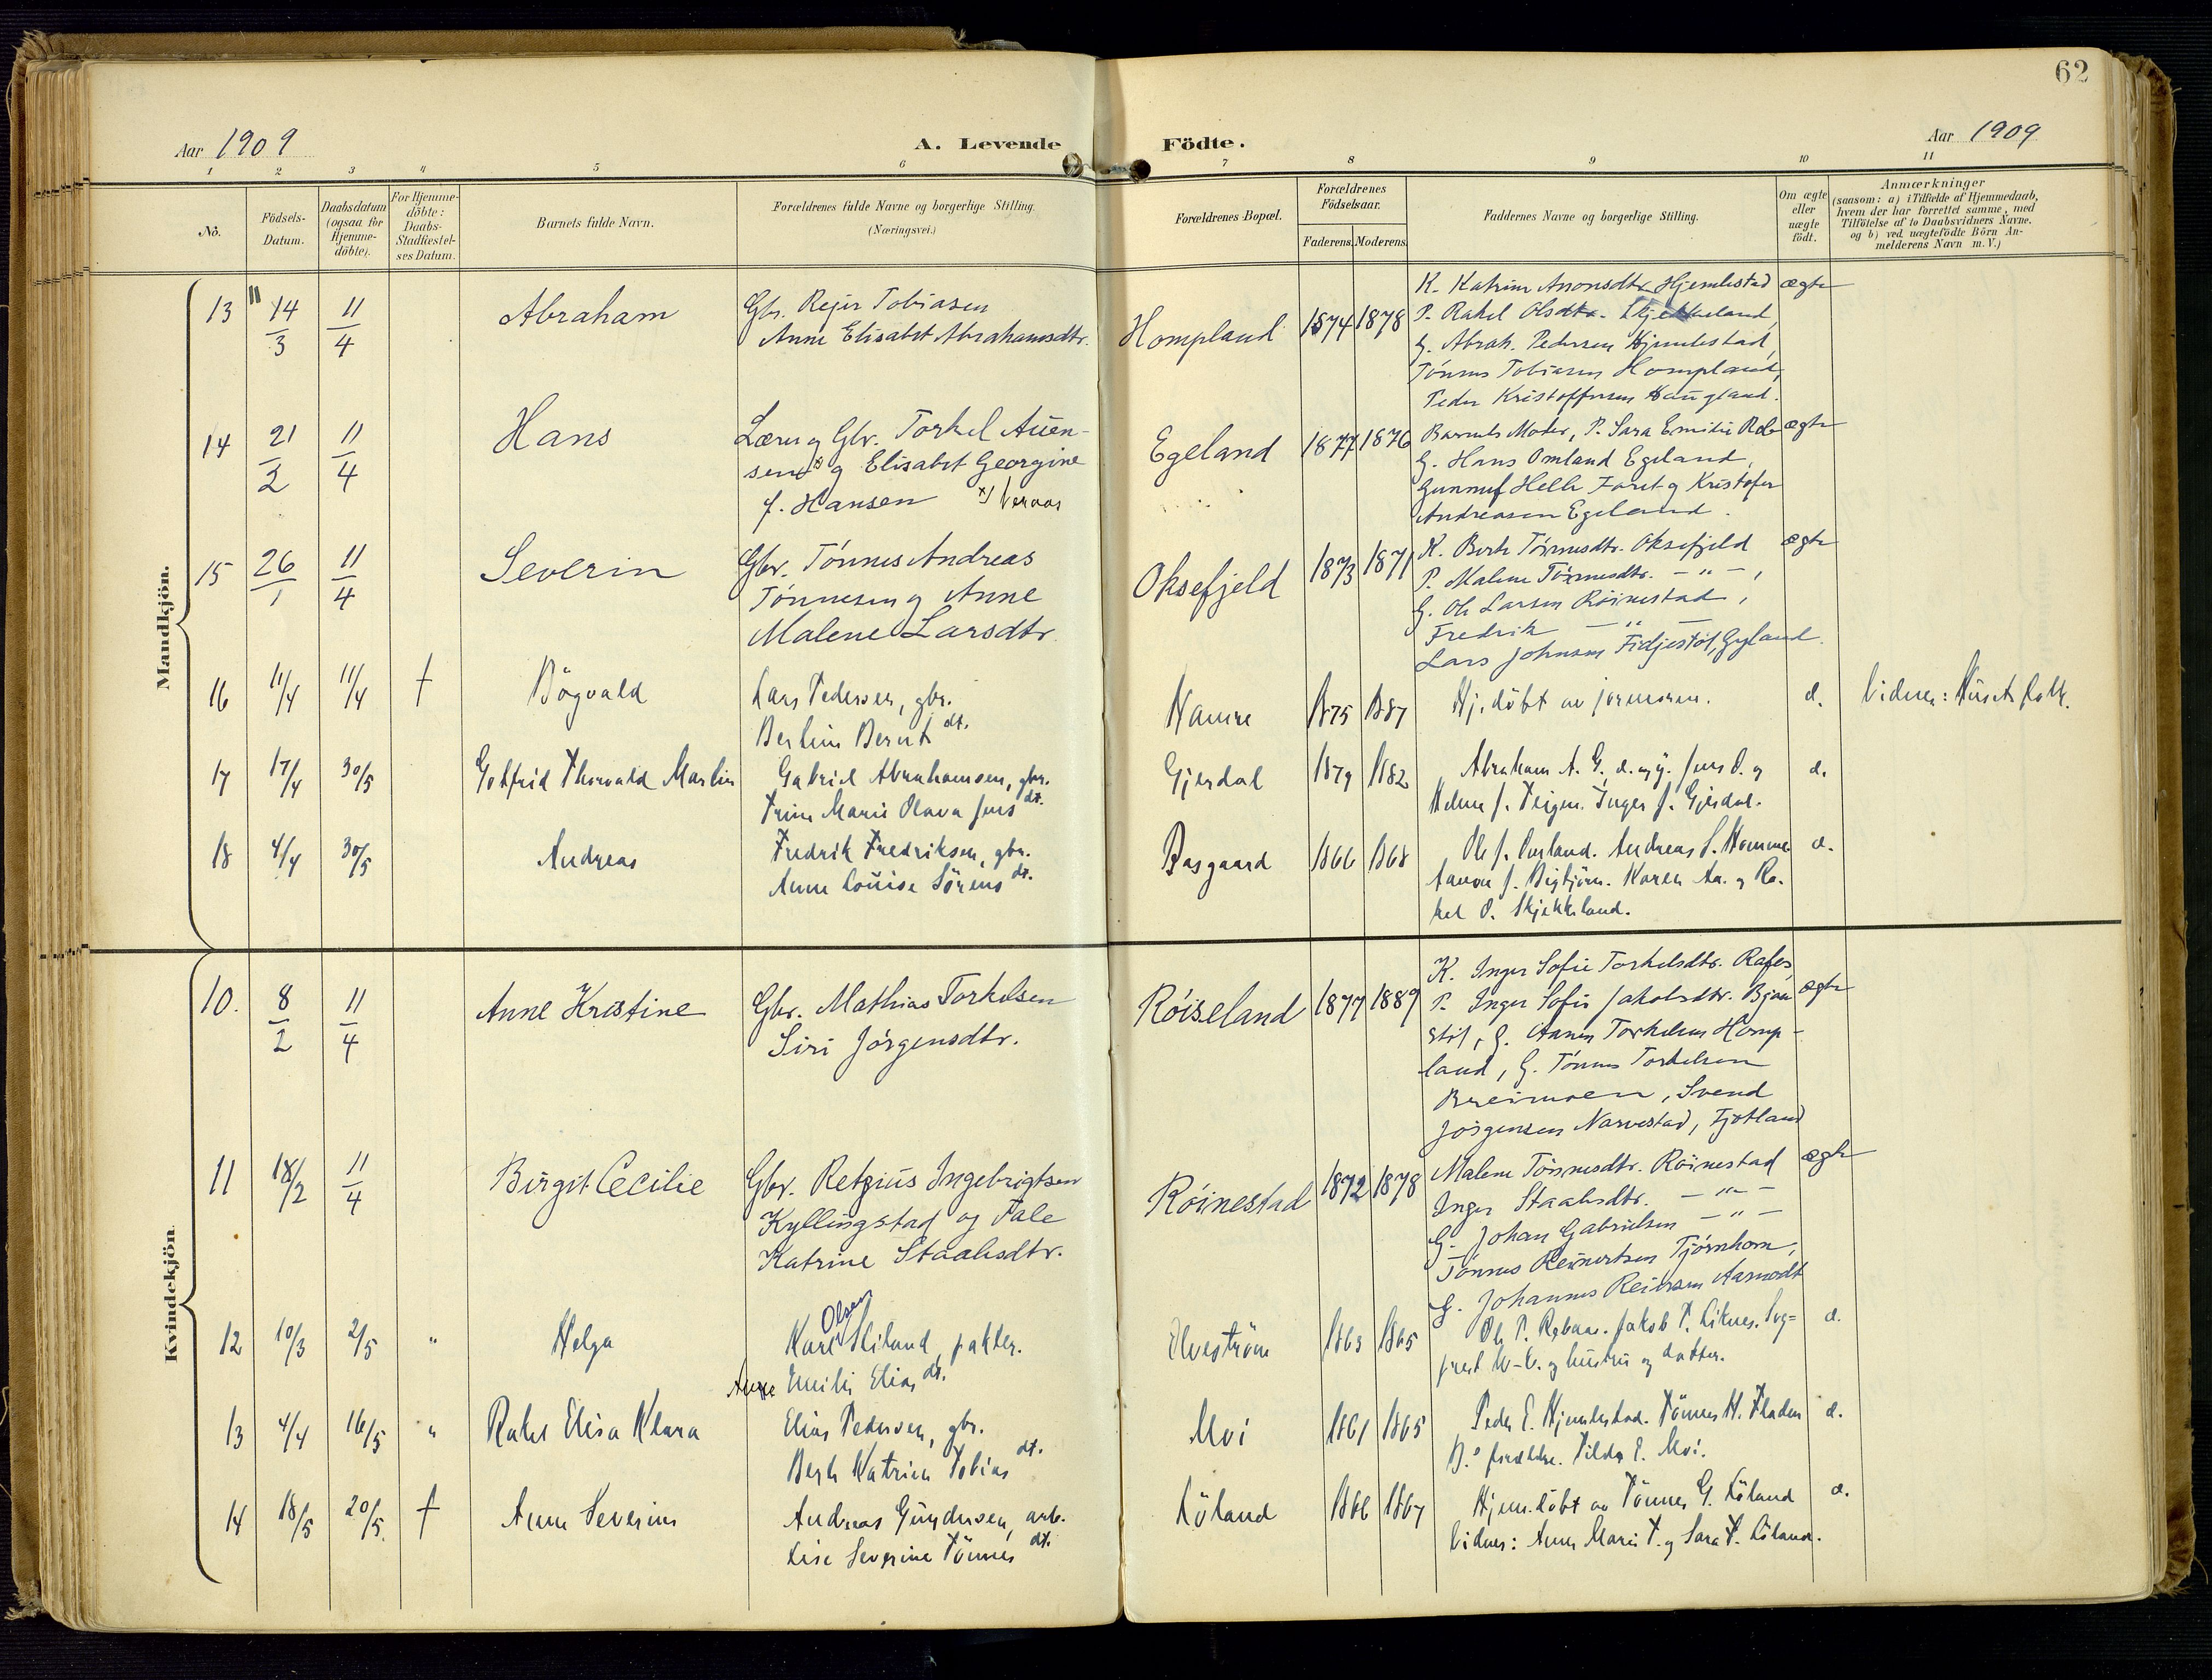 62
Aar 1909
A. Levende
Födte.
Aar 1909
1 2 3 4 5 6 7 8 9 10 11
No.
Födsels-
Datum.
Daabsdatum
(ogsaa for
Hjemme-
döbte).
For Hjemme-
döbte:
Daabs-
Stadfæstel-
ses Datum.
Barnets fulde Navn.
Forældrenes fulde Navne og borgerlige Stilling.
(Næringsvei.)
Forældrenes Bopæl.
Forældrenes
Födselsaar.
Faderens. Moderens.
Faddernes Navne og borgerlige Stilling.
Om ægte
eller
uægte
födt.
Anmærkninger
(saasom: a) i Tilfælde af Hjemmedaab,
hvem der har forrettet samme, med
Tilföielse af to Daabsvidners Navne.
og b) ved uægtefödte Börn An-
melderens Navn m. V.)
Mandkjön.
13 14/3 11/4 Abraham
Gbr. Rejer Tobiasen
Anne Elisabet Abrahamsdtr.
Hompland 1874 1878
K. Katrine Aronsdtr. Hjemlestad ægte
P. Rakel Olsdtr. Skjekkeland
G. Abrah. Pedersen Hjemlestad,
Tönnes Tobiasen Hompland,
Peder Kristoffersen Haugland.
14 21/2 11/4 Hans
Lærer og Gbr. Torkel Auen-
sen x) og Elisabet Georgine
f. Hansen x) Veraas
Egeland 1877 1876
Barnets Moder, P. Sara Emilie ægte
G. Hans Omland Egeland,
Gunnuf Helle og Kristofer
Andreasen Egeland.
15 26/1 11/4 Severin
Gbr. Tönnes Andreas
Tönnesen og Anne
Malene Larsdtr.
Oksefjeld 1873 1871
K. Berte Tönnesdtr. Oksefjeld ægte
P. Malene Tönnesdtr. — " —,
G. Ole Larsen Röinestad,
Fredrik — " —
Lars Johnsen Fidjestöl, Gyland.
16 11/4 11/4 † Bögvald
Lars Pedersen, gbr.
Berline Bernt dt.
Hamre 1875 1887
Hj. döbt av jormoren. d. Vidner: Husets folk.
17 17/4 30/5 Gotfrid Thorvald Marlin
Gabriel Abrahamsen, gbr.
Trine Marie Olava Jens dt.
Gjerdal 1879 1882
Abraham A. G. Jens O. og d.
Helene J. Teigen. Inger J. Gjerdal.
18 4/4 30/5 Andreas
Fredrik Fredriksen, gbr.
Anne Louise Sörens dt.
Basgaard 1866 1868
Ole J. Andreas S. Homme d.
J. Karen Aa. og Ra-
kel O. Skjekkeland.
Kvindekjön.
10. 8/2 11/4 Anne Kristine
Gbr. Mathias Torkelsen
Siri Jörgensdtr.
Röiseland 1877 1889
K. Inger Sofie Torkelsdtr. Rafos,
P. Inger Sofie Jakobsdtr. ægte
G. Aanen Torkelsen Homp-
land, G. Tönnes Torkelsen
Breimoen, Svend
Jörgensen Narvestad, Fjotland
11 18/2 11/4 Birgit Cecilie
Gbr. Retzius Ingebrigtsen
Kyllingstad og Tale
Katrine Staalesdtr.
Röinestad 1872 1878
Malene Tönnesdtr. Röinestad ægte
Inger Staalesdtr. — " —
G. Johan Gabrielsen — " —
Tönnes Reinertsen Tjörnhom,
G. Johannes Reiersen Aamodt
12 10/3 2/5 " Helga
Olsen
Karl Hiland, pakter.
Anne Emilie Elias dt.
Elvestrøm 1863 1865
Ole P. Jakob T. Liknes. Sog- d.
prest og hustru og datter.
13 4/4 16/5 " Rakel Elisa Klara
Elias Pedersen, gbr.
Berte Katrine Tobias dt.
Moi 1861 1865
Peder E. Hjemlestad. Tönnes H. Fladen d.
B.s forældre. Tilda E. Moi.
14 18/5 20/5 † Anne Severine
Andreas Gundersen, arb.
Lise Severine Tönnes dt.
Löland 1866 1867
Hjem.döbt av Tönnes G. Löland d.
Vidner: Anne Marie T. og Sara T. Löland.